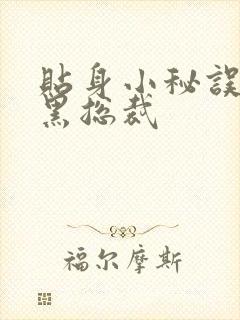 貼身小秘誤
黑總裁
福尔摩斯